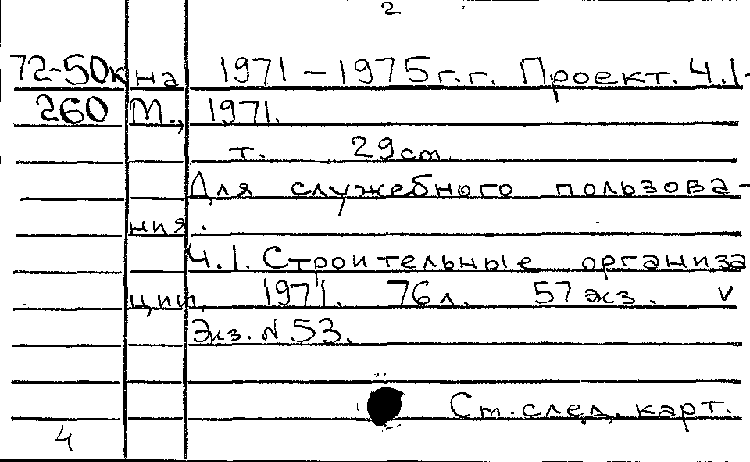 2
72-50к на 1971-1975 г.г. Проект. Ч.1-
260 М., 1971.
т. 29 см.
Для служебного пользова-
ния.
Ч.1. Строительные организа
ции. 1971. 76 л. 57 экз. v
Экз. N 53.
См. след. карт.
4